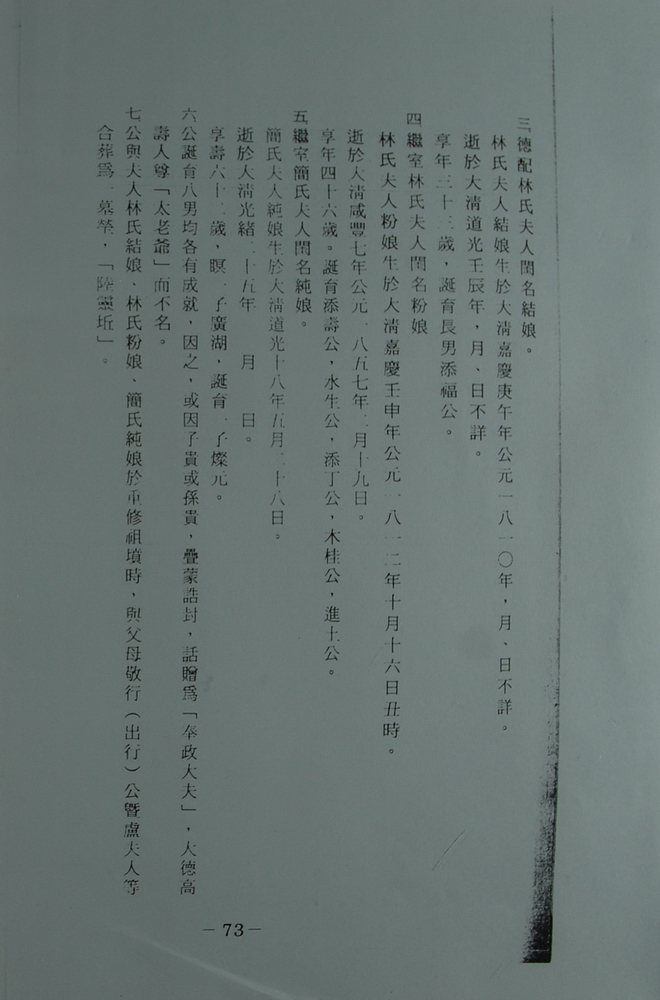 三、德配林氏夫人閨名結娘。
林氏夫人結娘生於大清嘉慶庚午年公元一八一〇年，月、日不詳。
逝於大清道光壬辰年，月、日不詳。
享年三十三歲，誕育長男添福公。
四、繼室林氏夫人閨名粉娘
林氏夫人粉娘生於大清嘉慶壬申年公元一八一二年十月十六日丑時。
逝於大清咸豐七年公元一八五七年二月十九日。
享年四十六歲。誕育添壽公，水生公，添丁公，木桂公，進土公。
五、繼室簡氏夫人閨名純娘。
簡氏夫人純娘生於大清道光十八年五月二十八日。
逝於大清光緒二十五年　月　日。
享壽六十二歲，瞑一子廣湖，誕育一子燦元。
六、公誕育八男均各有成就，因之，或因子貴或孫貴，疊蒙誥封，誥贈爲「奉政大夫」，大德高
壽人尊「太老爺」而不名。
七、公與夫人林氏結娘、林氏粉娘、簡氏純娘於重修祖墳時，與父母敬行（出行）公暨盧夫人等
合葬爲一墓塋，「陸靈坵」。
－73－